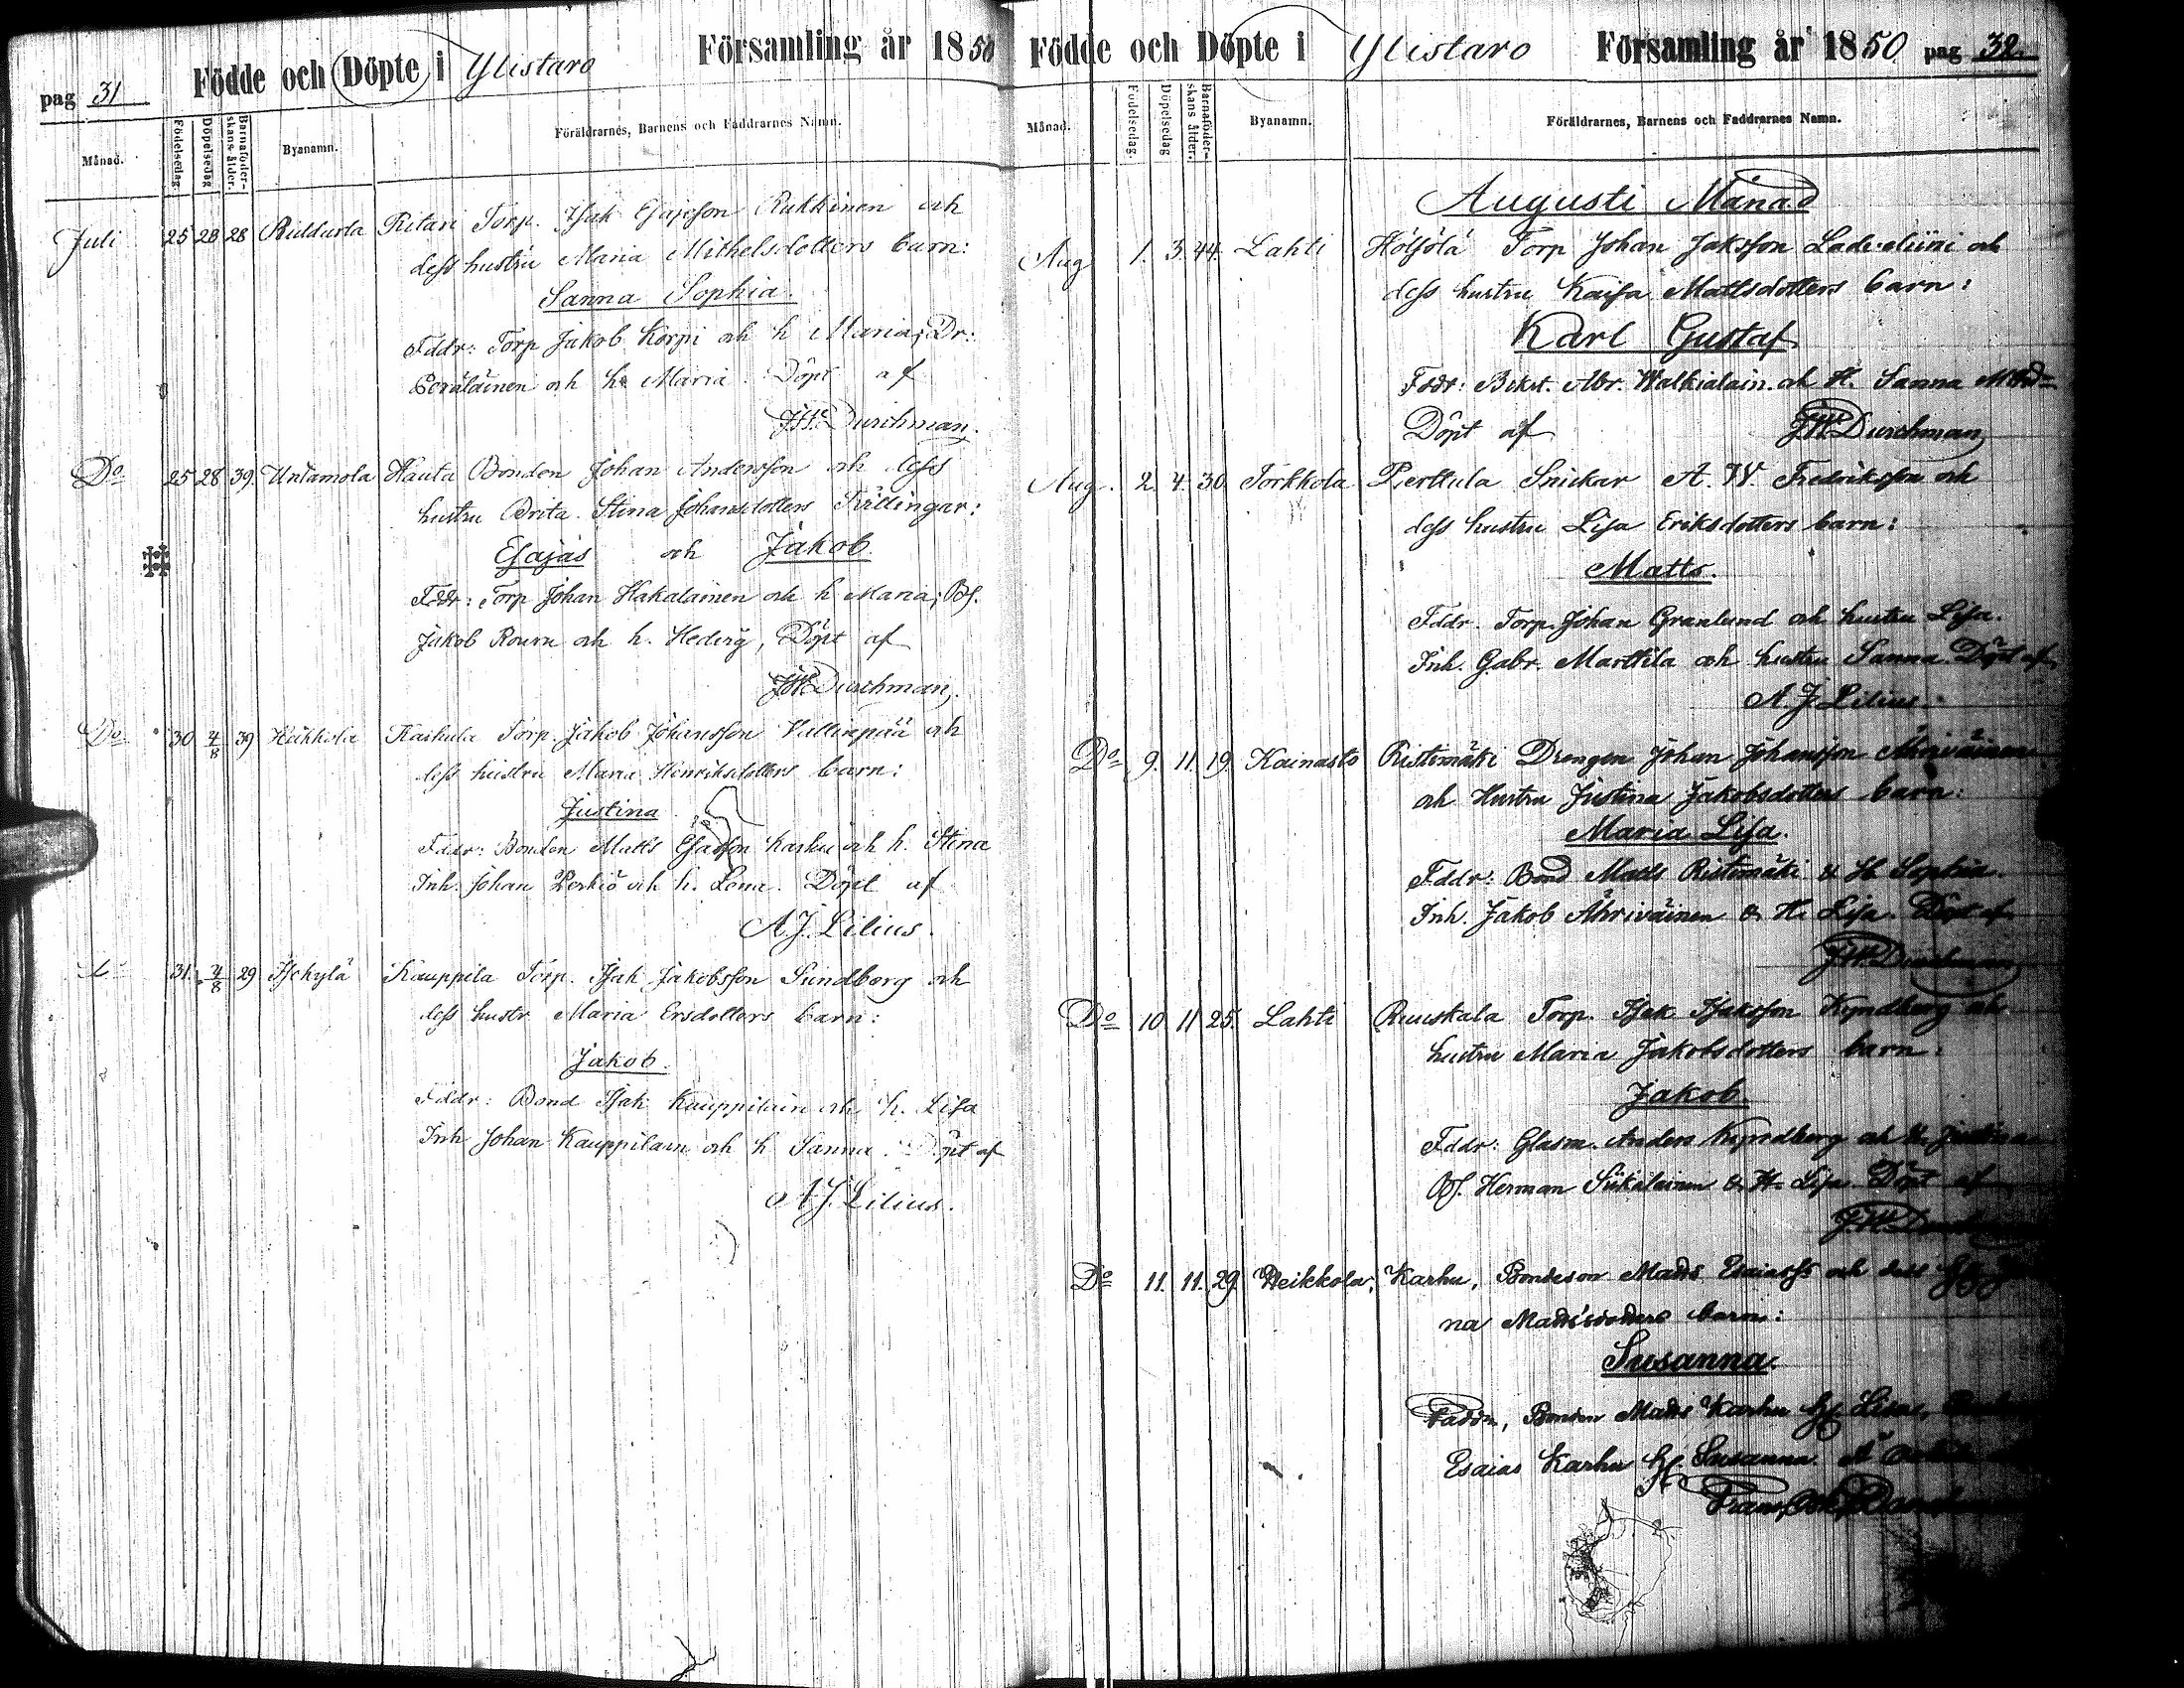 pag 31 Födde och Döpte i Ylistaro Församling år 1850
Månad. Födelsedag Döpelsedag Barnaföderskans ålder. Byanamn. Föräldrarnes, Barnens och Faddrarnes Namn.
Juli 25 28 28 Ritari Torp. Isak Esajesson Rukkinen och
dess hustru Maria Mithelsdotters barn:
Sanna Sophia.
Fddr: Torp Jakob Korpi och h Maria; Dr:
Perälainen och h. Maria. Döpt af
JW Durchman.
Do 25 28 39. Untamola Hauta Bonden Johan Andersson och dess
hustru Brita Stina Johansdotters Tvillingar:
Esajas och Jakob.
Fddr: Torp Johan Hakalainen och h Maria; Bs.
Jakob h. Hedvig, Döpt af
JW Durchman.
Do 30 4/8 39 Torp. Jakob Johansson Vallinpää och
dess hustru Maria Henriksdotters barn:
Justina
Fddr: Bonden Matts Esaisson Karhu och h. Stina
Inh. Johan Perkiö och h. Lena. Döpt af
A.J. Lilius.
31. 4/8 29 Isokylä Kauppila Torp. Isak Jakobsson Sundberg och
dess hustr Maria Ersdotters barn:
Jakob.
Fddr: Bond Isak Kauppilain och h. Lisa
Inh Johan Kauppilain och h Sanna. Döpt af
A.J. Lilius.
Födde och Döpte i Ylistaro Församling år 1850 pag 32.
Månad. Födelsedag. Döpelsedag Barnaföderskans ålder. Byanamn. Föräldrarnes, Barnens och Faddrarnes Namn.
Augusti Månad
Aug 1. 3. 44. Lahti Torp Johan Jaksson och
dess hustru Kaisa Mattsdotters barn:
Karl Gustaf
Fddr: Abr. Walkialain. och H. Sanna
Döpt af JW Durchman
Aug. 2. 4. 30 Torkkola Pierttula Snickar A. W. Fredriksson och
dess hustru Lisa Eriksdotters barn:
Matts.
Fddr. Torp. Johan Granlund och hustru Lisa.
Inh. Gabr. Marttila och hustru Sanna. Döpt af
A. J. Lilius.
Do 9. 11. 19. Kainasto Ristimäki Drengen Johan Johansson Ähriväinen
och Hustru Justina Jakobsdotters barn:
Maria Lisa.
Fddr: Bond Matts Ristimäki & H Sophia.
Inh. Jakob Ähriväinen & H. Lisa. Döpt af
JW Durchman
Do 10 11 25. Lahti Ruuskala Torp. Isak Isaksson Kyndberg och
hustru Maria Jakobsdotters barn:
Jakob.
Fddr: Glasm. Anders Kyndberg och H. Justina
Bs. Herman & H. Lisa. Döpt af
J.W. Durchman
Do 11. 11. 29. Heikkola, Karhu, Bondeson Matts Esaiass och dess
na Mattsdotters barn:
Susanna
Faddr, Bonden Matts Karhu H. Lisa,
Esaias Karhu H. Susanna.